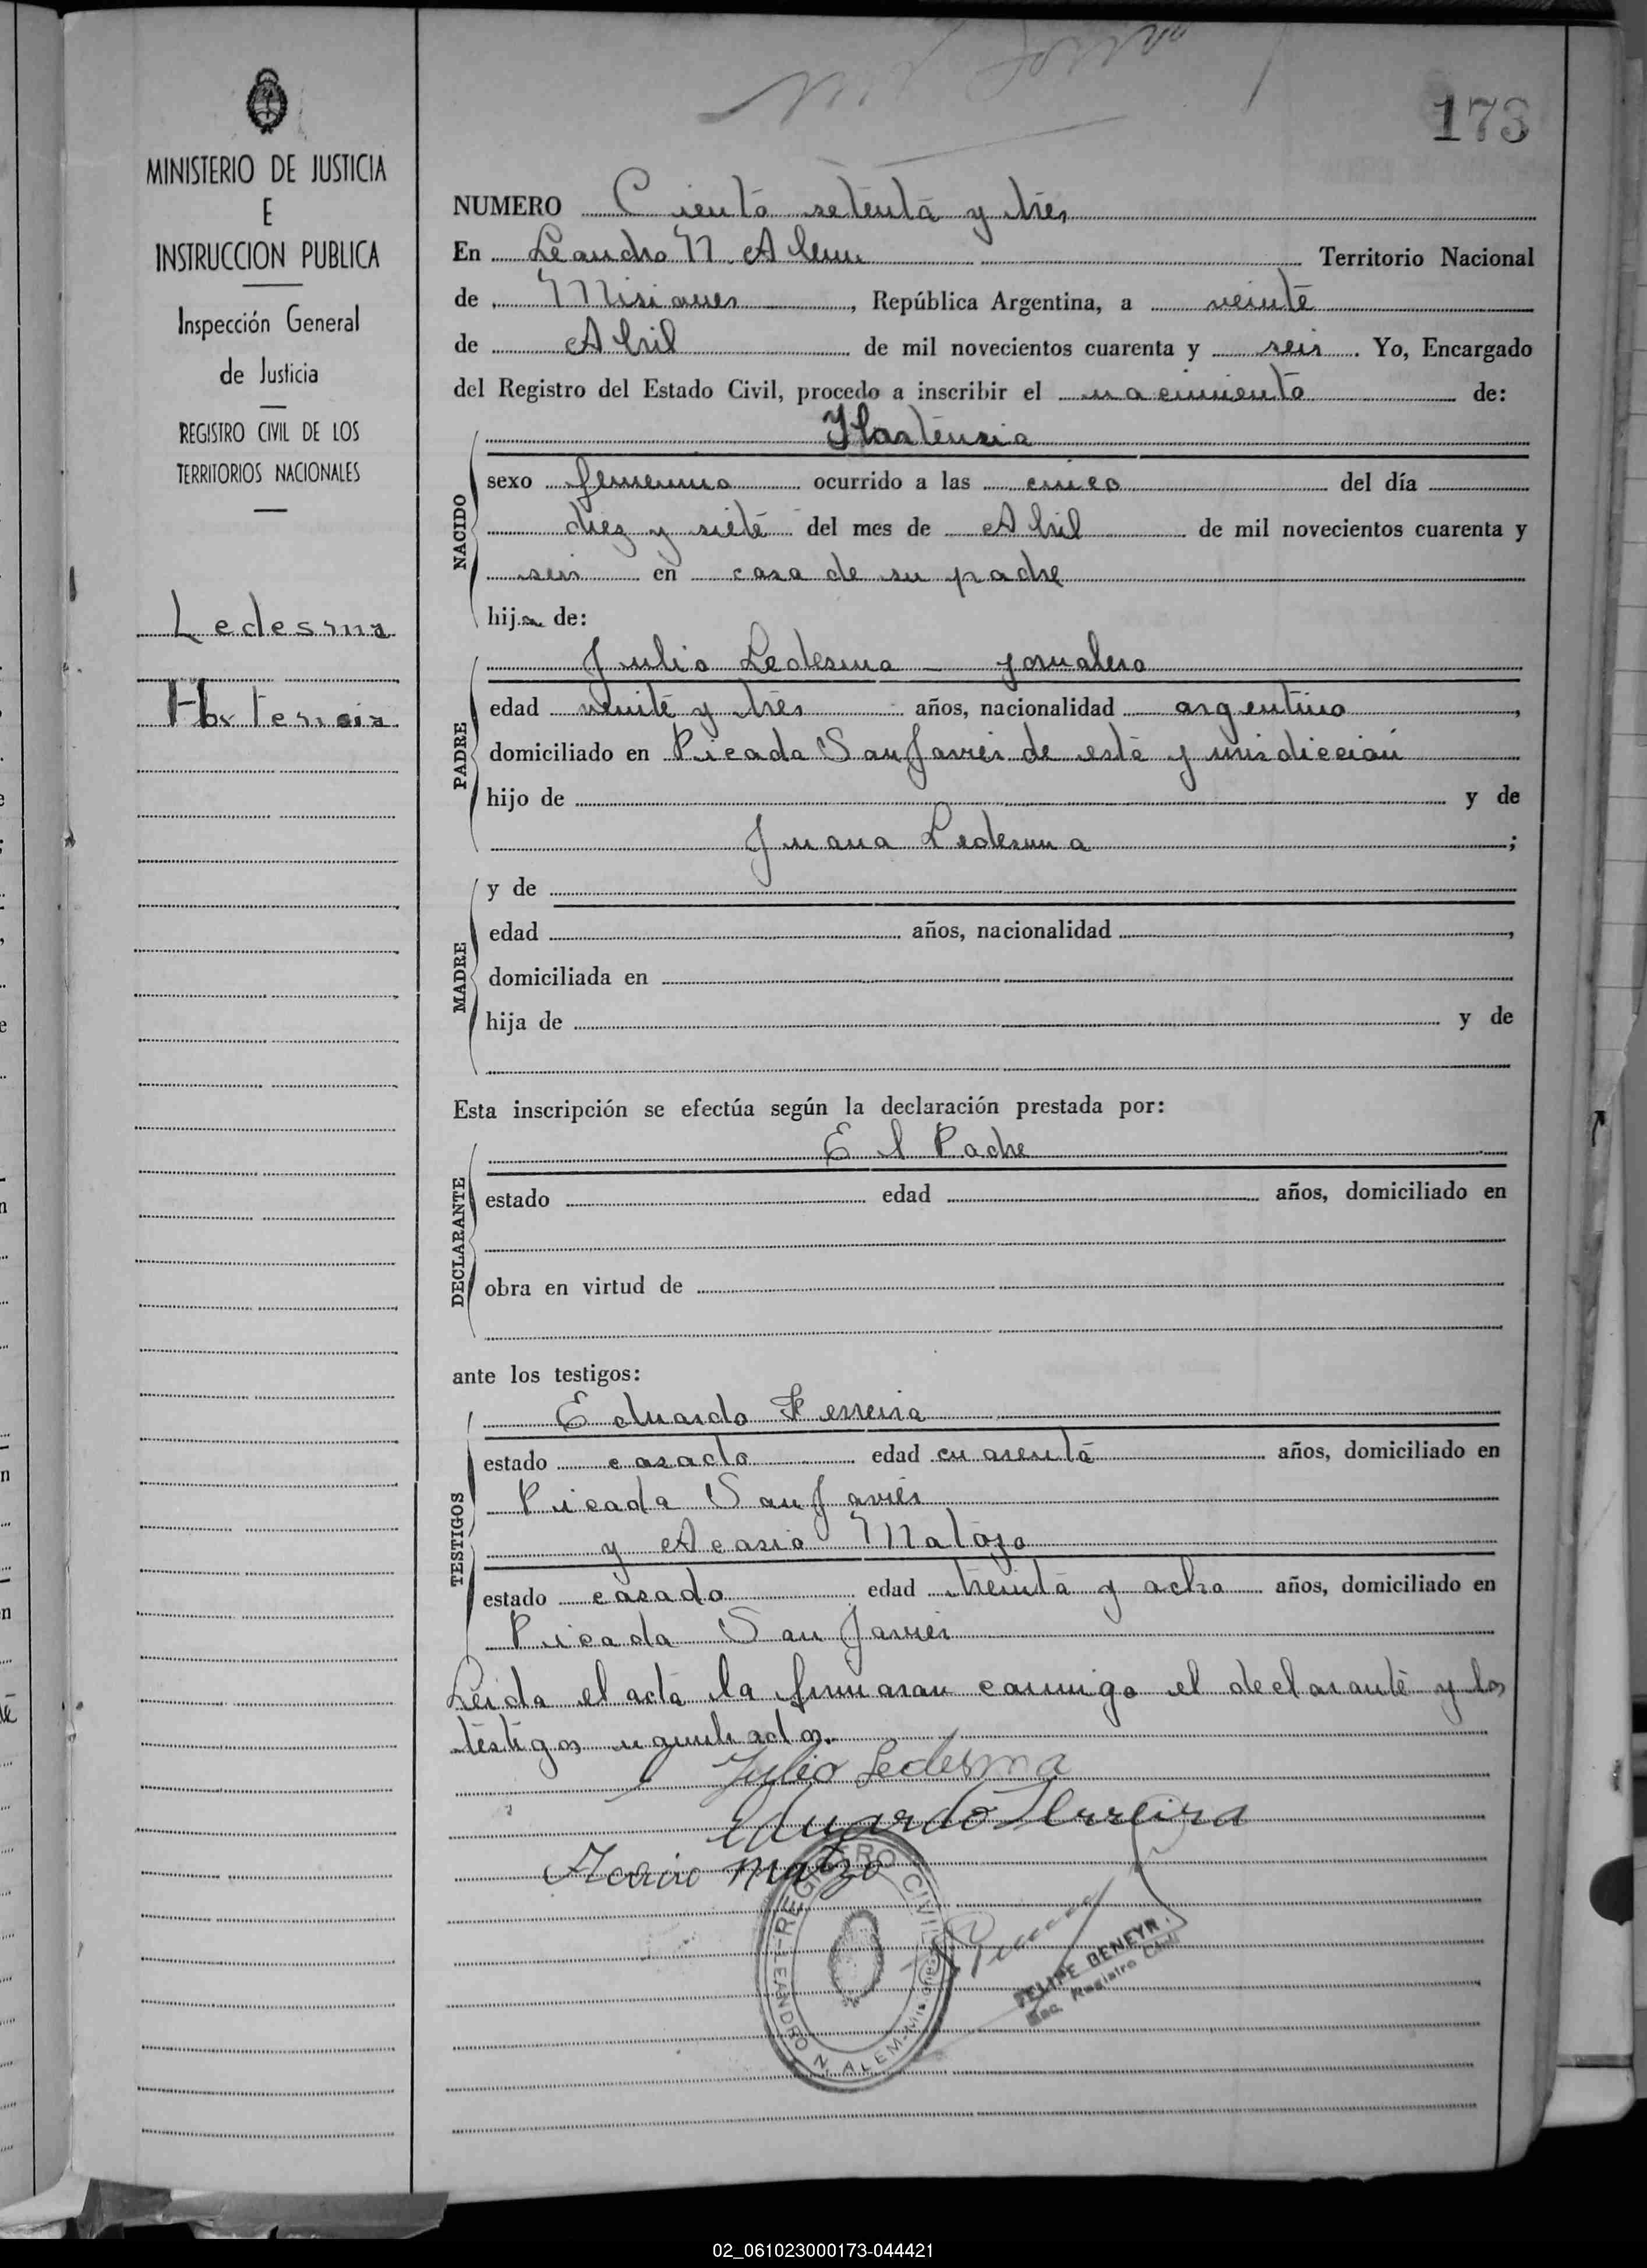 173
MINISTERIO DE JUSTICIA
E
INSTRUCCION PUBLICA
Inspección General
de Justicia
REGISTRO CIVIL DE LOS
TERRITORIOS NACIONALES
Ledesma
Hortencia
NUMERO Ciento setenta y tres
En Leandro N. Alem Territorio Nacional
de Misiones, República Argentina, a veinte
de Abril de mil novecientos cuarenta y seis. Yo, Encargado
del Registro del Estado Civil, procedo a inscribir el nacimiento de:
NACIDO
Hortensia
sexo femenino ocurrido a las cinco del día
diez y siete del mes de Abril de mil novecientos cuarenta y
seis en casa de su padre
hija de:
PADRE
Julio Ledesma - jornalero
edad veinte y tres años, nacionalidad argentino,
domiciliado en Picada San Javier de este jurisdiccion
hijo de y de
Juana Ledesma;
MADRE
y de
edad años, nacionalidad,
domiciliada en
hija de y de
Esta inscripción se efectúa según la declaración prestada por:
DECLARANTE
El Padre
estado edad años, domiciliado en
obra en virtud de
ante los testigos:
TESTIGOS
Eduardo Ferreira
estado casado edad cuarenta años, domiciliado en
Picada San Javier
y Acasio Matozo
estado casado edad treinta y ocho años, domiciliado en
Picada San Javier
Leida el acta la firmaran conmigo el declarante y los
testigos nombrados.
Julio Ledesma
Eduardo Ferreira
Acacio Matozo
REGISTRO CIVIL
LEANDRO N. ALEM - Misiones
FELIPE BENEYR
Registro Civil
02_061023000173-044421